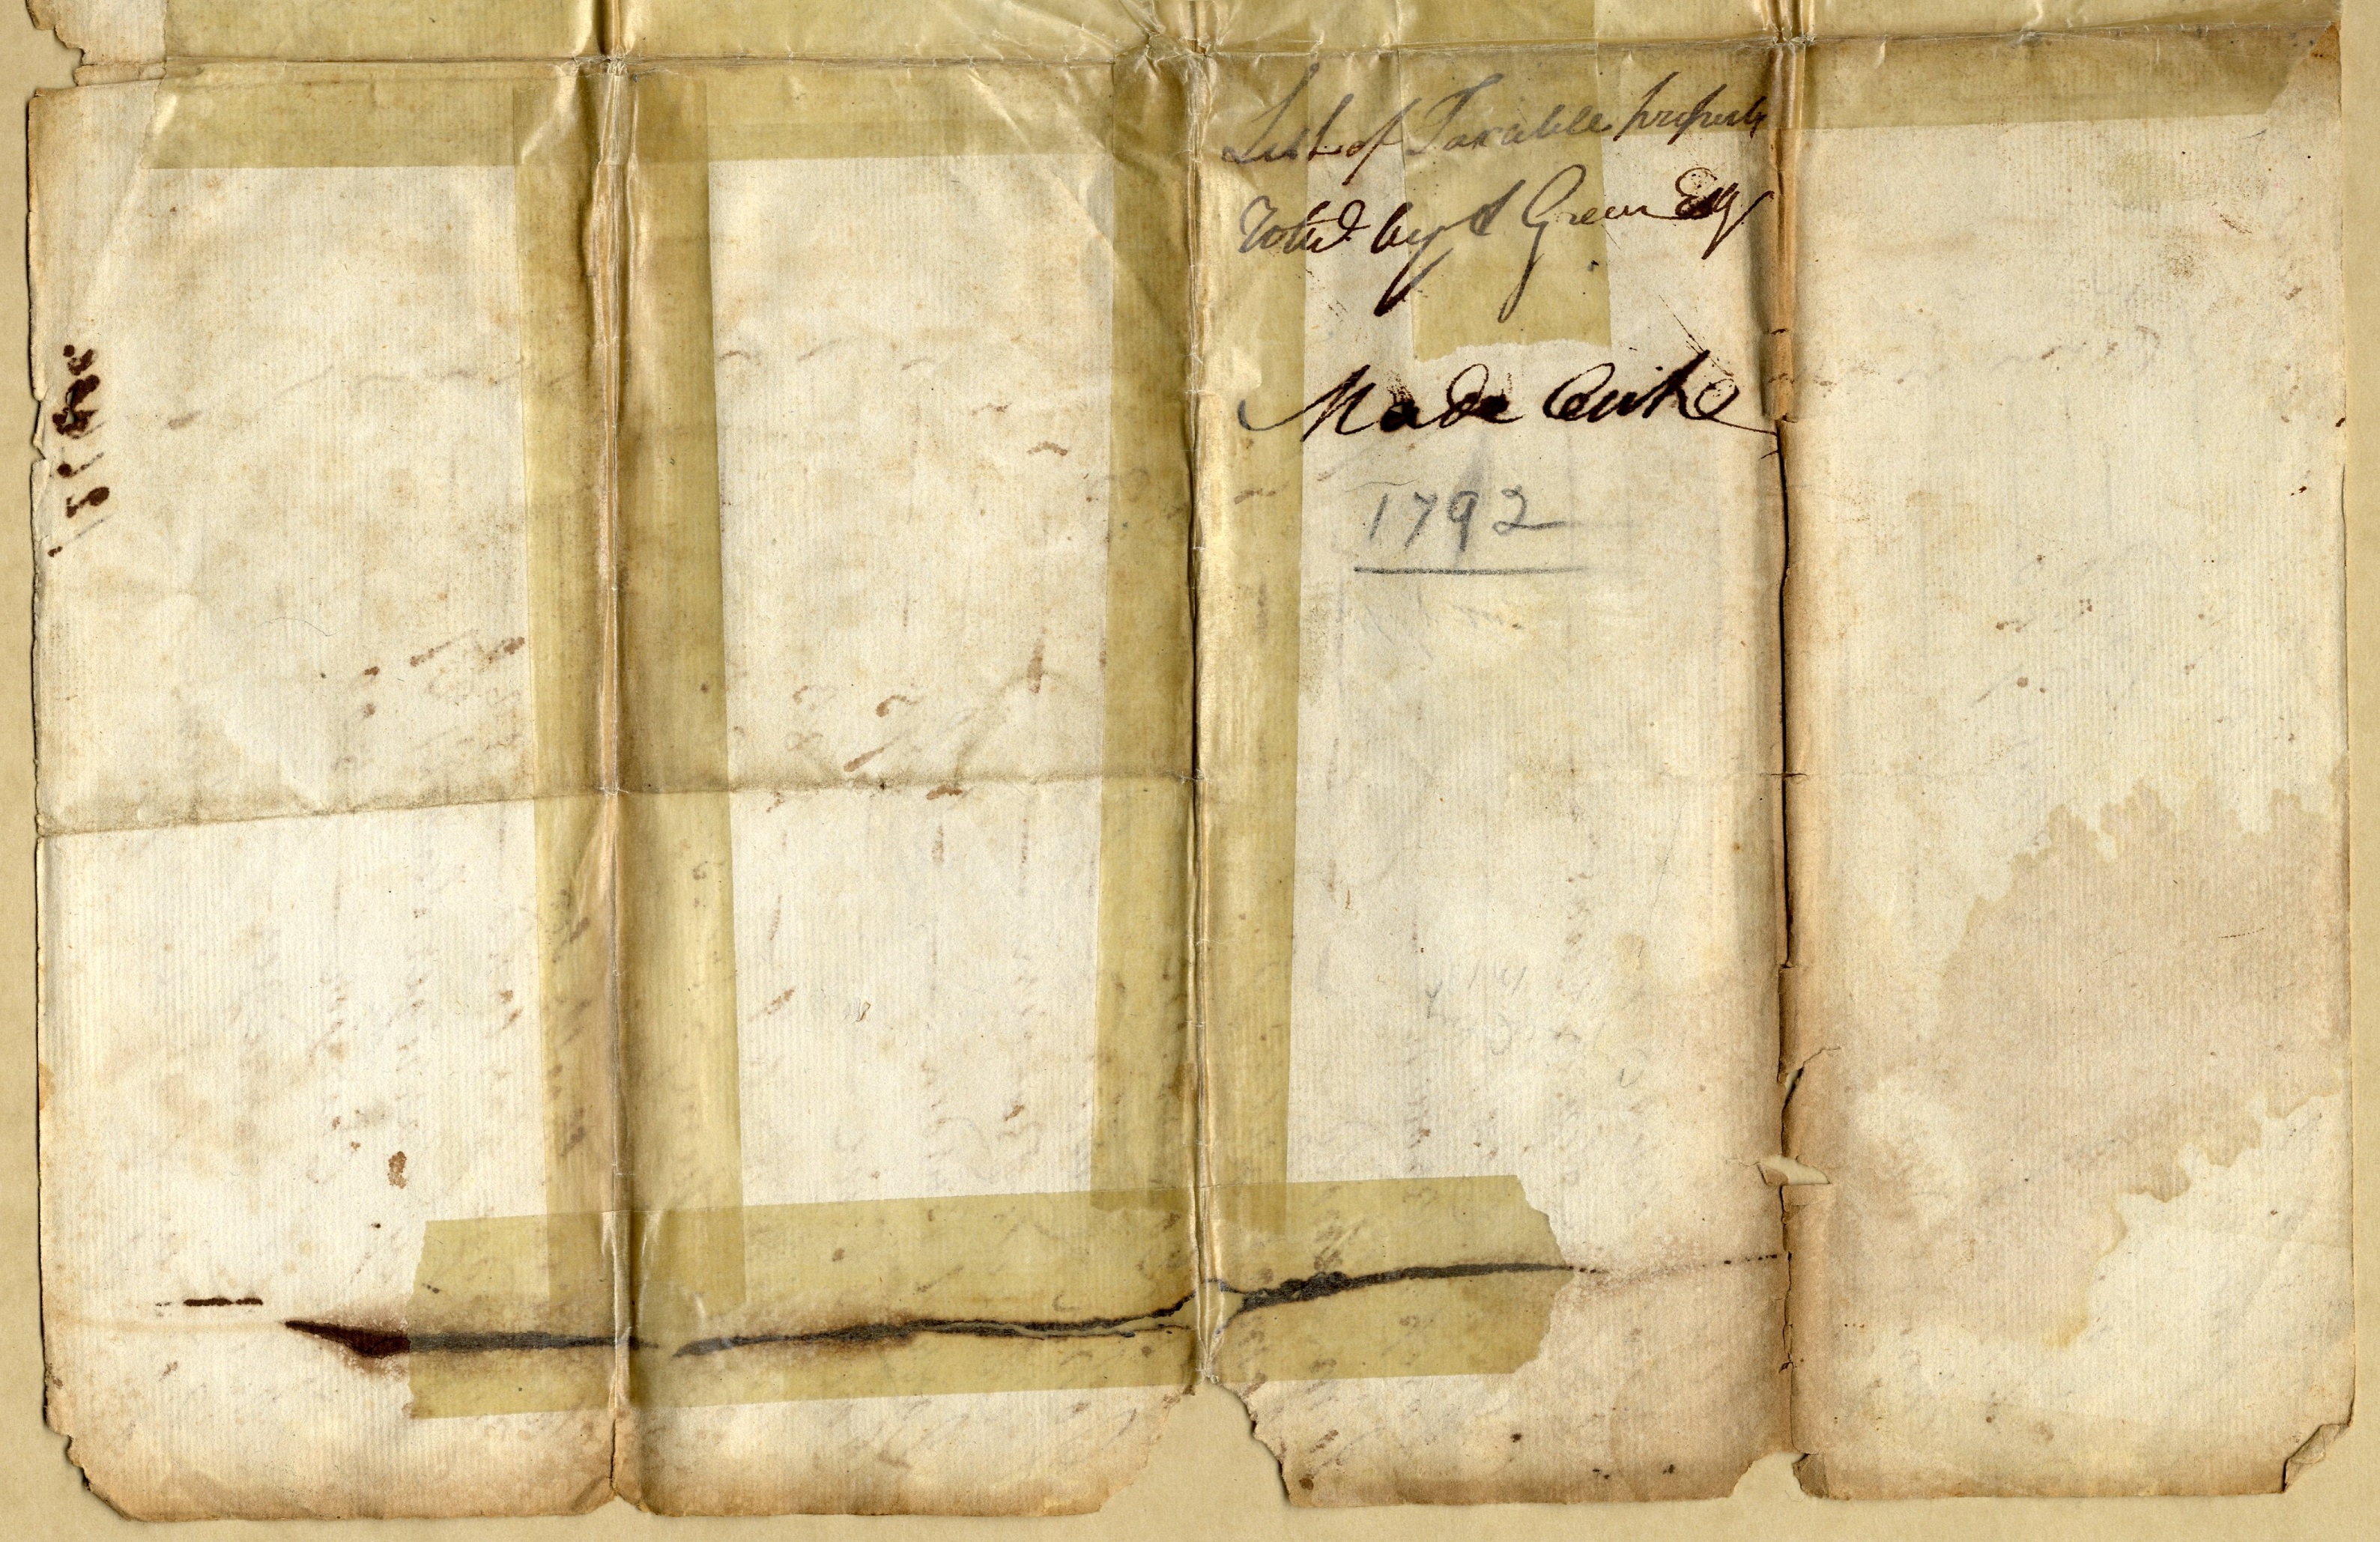 List of Taxable property
by A Green Esq
Made out
1792